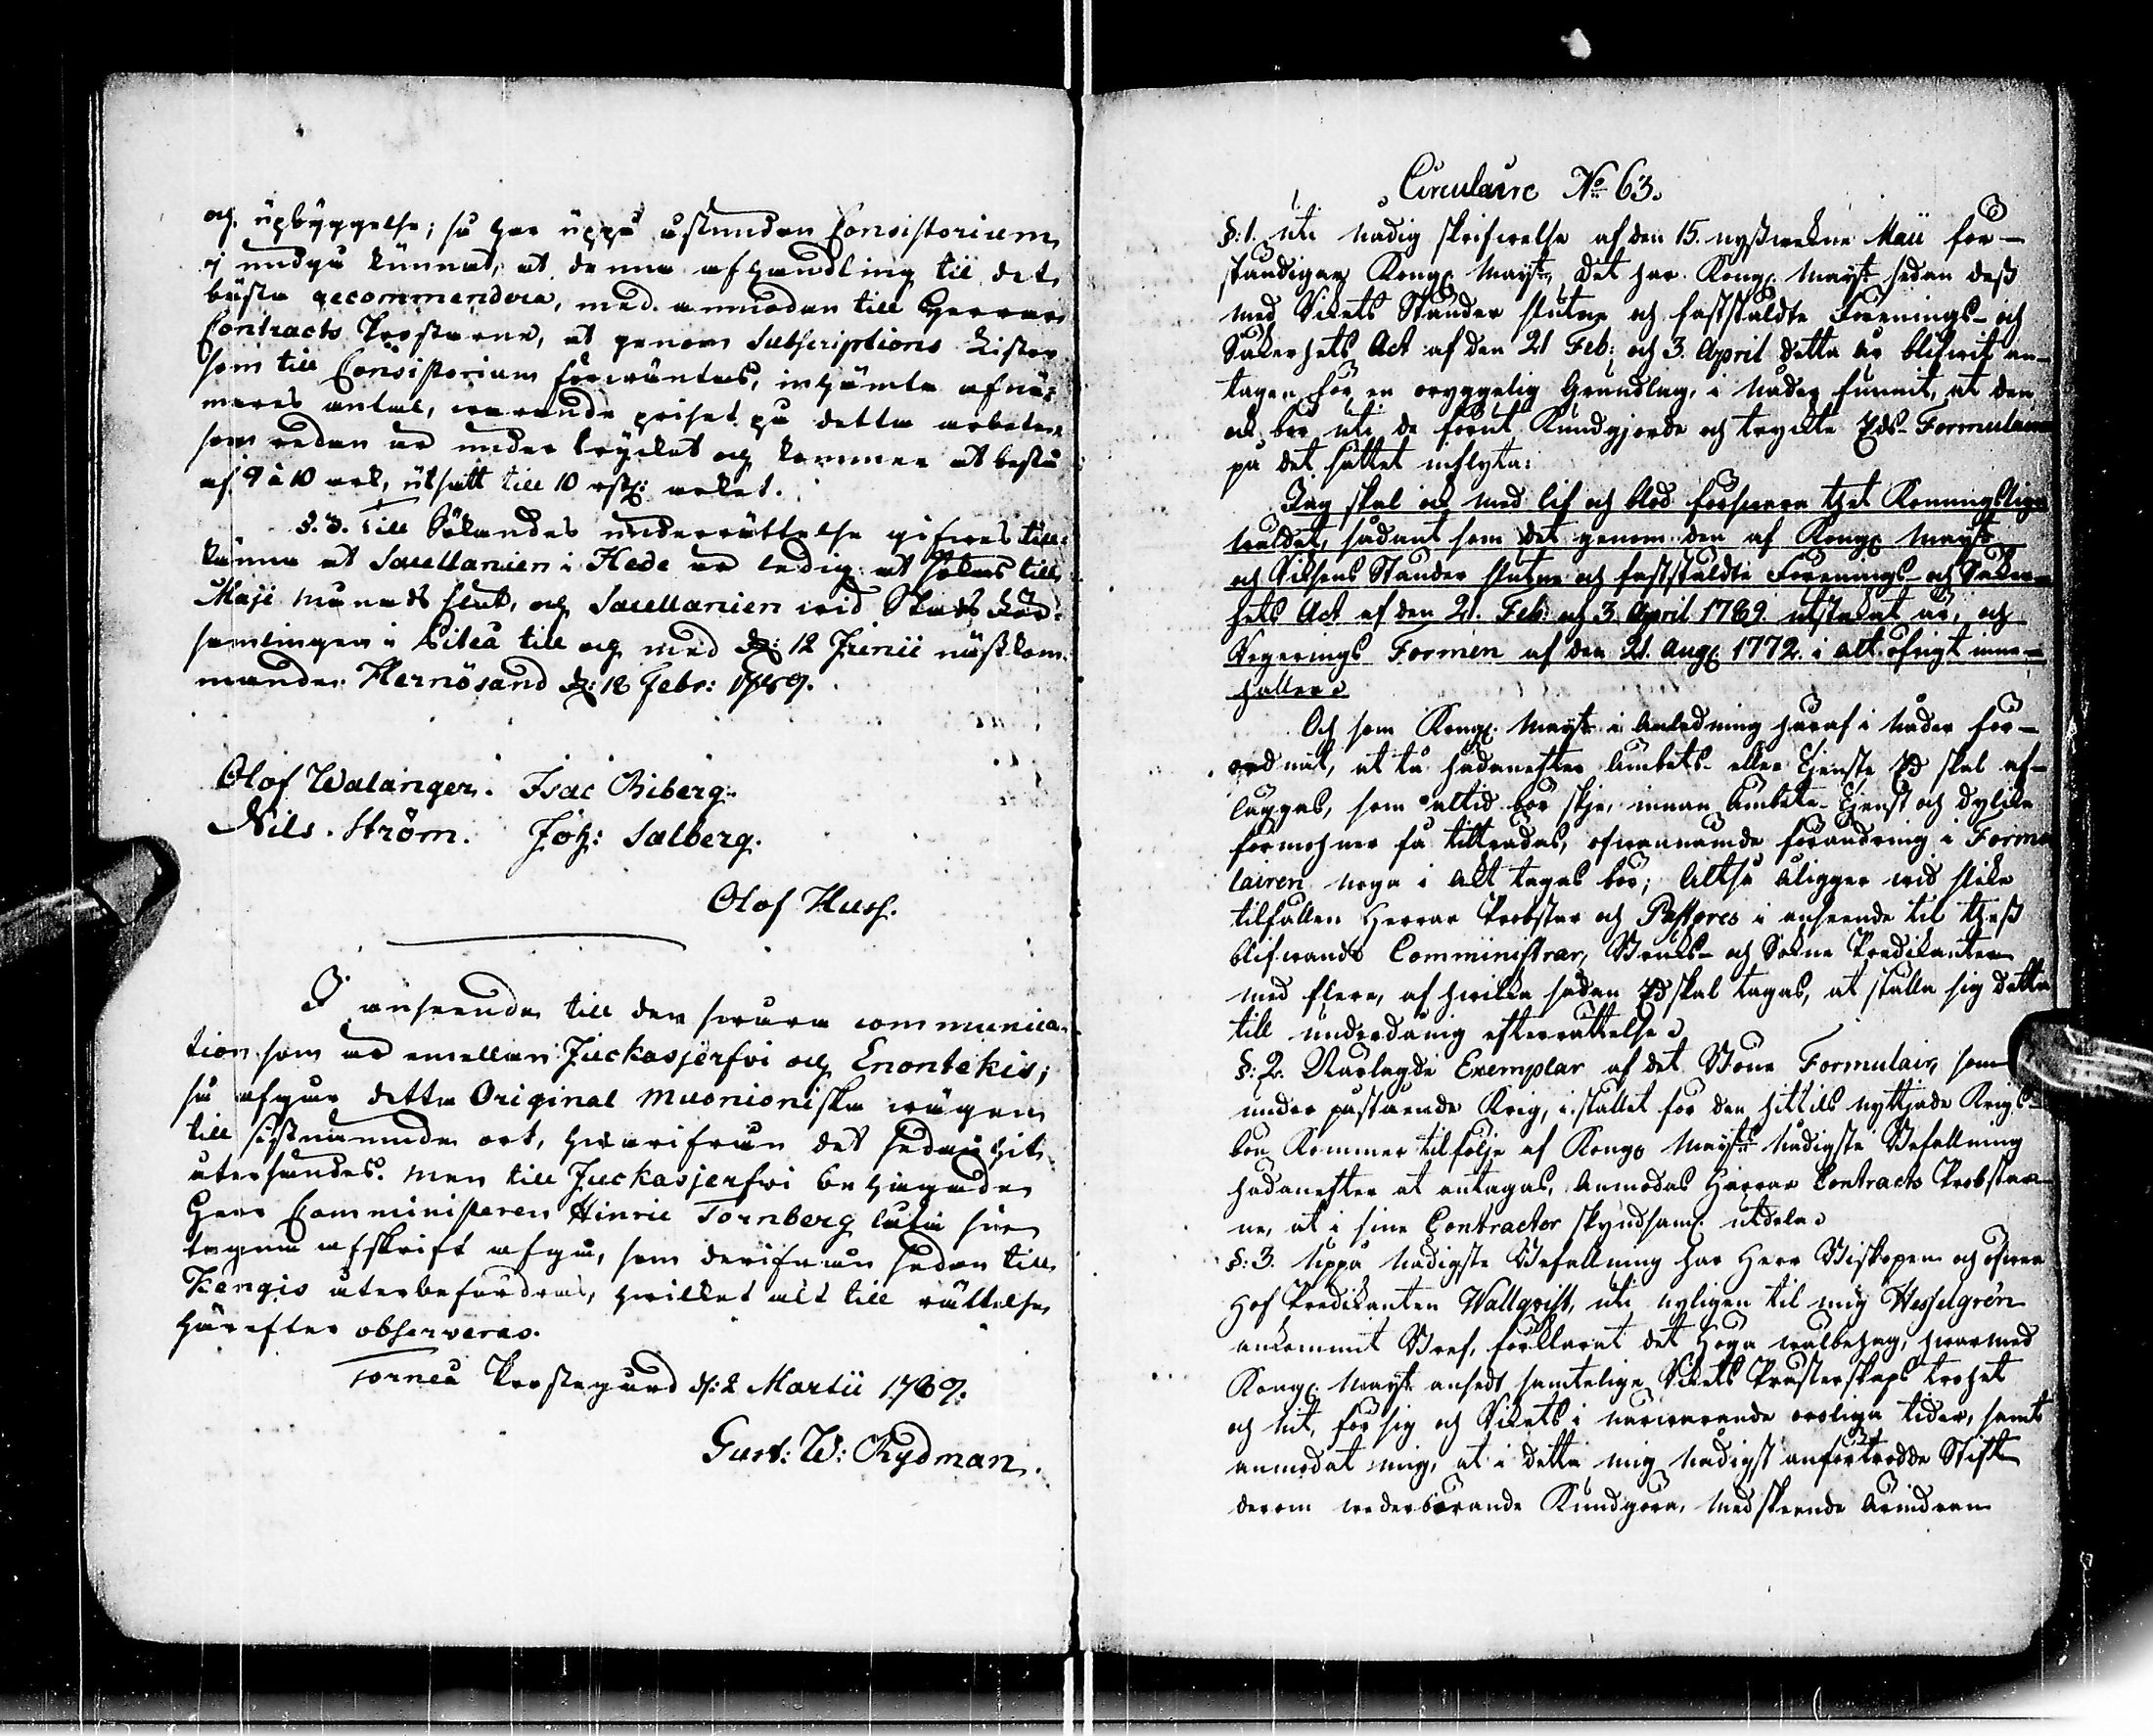 och upbyggelse; så har uppå åstundan Consistorium
ej undgå kunnat, at denna afhandling til det
bästa recommendera, med anmodan till Herrar
Contracts Prostarne, at genom Subscriptions Listor
som till Consistorium förwäntas, inhämta afnä-
mares antal, warande priset på detta arbete,
som redan är under trycket och kommer at bestå
af 9 à 10 ark, utsatt till 10 rst: arket.
§. 3. Till Sökandes underrättelse gifwes till-
känna at Sacellanien i Hede är ledig at sökas till
Maji månads slut, och Sacellanien wid Stads För-
samlingen i Piteå till och med d: 12 Junii nästkom-
mande. Hernösand d: 18 Febr: 1789.
Olof Walanger. Isac Biberg.
Nils Ström. Joh: Salberg.
Olof Huss.
I anseende till den swåra communica-
tion som är emellan Juckasjerfvi och Enontekis;
så afgår detta Original Muonioniska wägen
till sistnämnde ort, hwarifrån det sedan hit
återsändes. Men till Juckasjerfwi behagade
Herr Comministeren Hinric Tornberg låta här
tagna afskrift afgå, som derifrån sedan till
Kengis återbefordras, hwilket alt till rättelse
härefter observeras.
Torneå Prostegård d: 2 Martii 1789.
Gust: W: Rydman.
Circulaire No 63.
§. 1. Uti nådig skrifwelse af den 15. nystwekne Maii för-
ständigar Kongl. Mayst, det har Kongl. Mayst sedan dess
med Rikets Ständer slutne och fastställdte Förenings- och
Säkerhets Act af den 21 Feb: och 3. April detta år blifwit an-
tagen för en oryggelig Grundlag, i Nåder funnit, at den
ock bör uti de förut Kundgjorde och tryckte Eds- Formulairen
på det sättet inflyta:
Jag skal ock med lif och blod förswara thet Konungsliga
wäldet, sådant som det genom den af Kongl. Mayst
och Riksens Ständer slutne och fastställdte Förenings- och Säker-
hets Act af den 21. Feb: och 3. April 1789. utstakat är, och
Regerings Formen af den 21. Aug. 1772. i alt öfrigt inne-
håller.
Och som Kongl. Mayst i anledning häraf i Nåder för-
ordnat, at då hädanefter ämbets- eller tjenste Ed skal af-
läggas, som altid bör skje, innan Embete- tjenst och dylika
förmohner få tillträdas, ofwannämde förändring i Formu
lairen noga i akt tagas bör; Altså åligger wid slika
tilfällen Herrar Probstar och Pastores i anseende til thess
blifwande Comministrar, Bruks- och Sokne Predikanter
med flere, af hwilka sådan Ed skal tagas, at ställa sig detta
till underdånig efterrättelse.
§. 2. Närlagde Exemplar af det Böne Formulair, som
under påstående Krig, i stället för den hittils nyttjade Krigs-
bön Kommer tilfölje af Kongl Maysts Nådigste Befallning
hädanefter at antagas, Anmodas Herrar Contracts Probstar-
ne, at i sine Contracter skyndsamt utdela.
§. 3. Uppå Nådigste Befallning har Herr Biskopen och öfwer
Hof Predikanten Wallqvist, uti nyligen til mig Hesselgren
ankommit Bref, förklarat det Höga wälbehag, hwarmed
Kongl. Mayst ansedt samtelige Rikets Prästerskaps trohet
och nit, för sig och Riket i närwarande oroliga tider, samt
anmodat mig, at i detta mig Nådigst anförtrodde Stift
derom wederbörande Kundgöra, med skeende ärindran